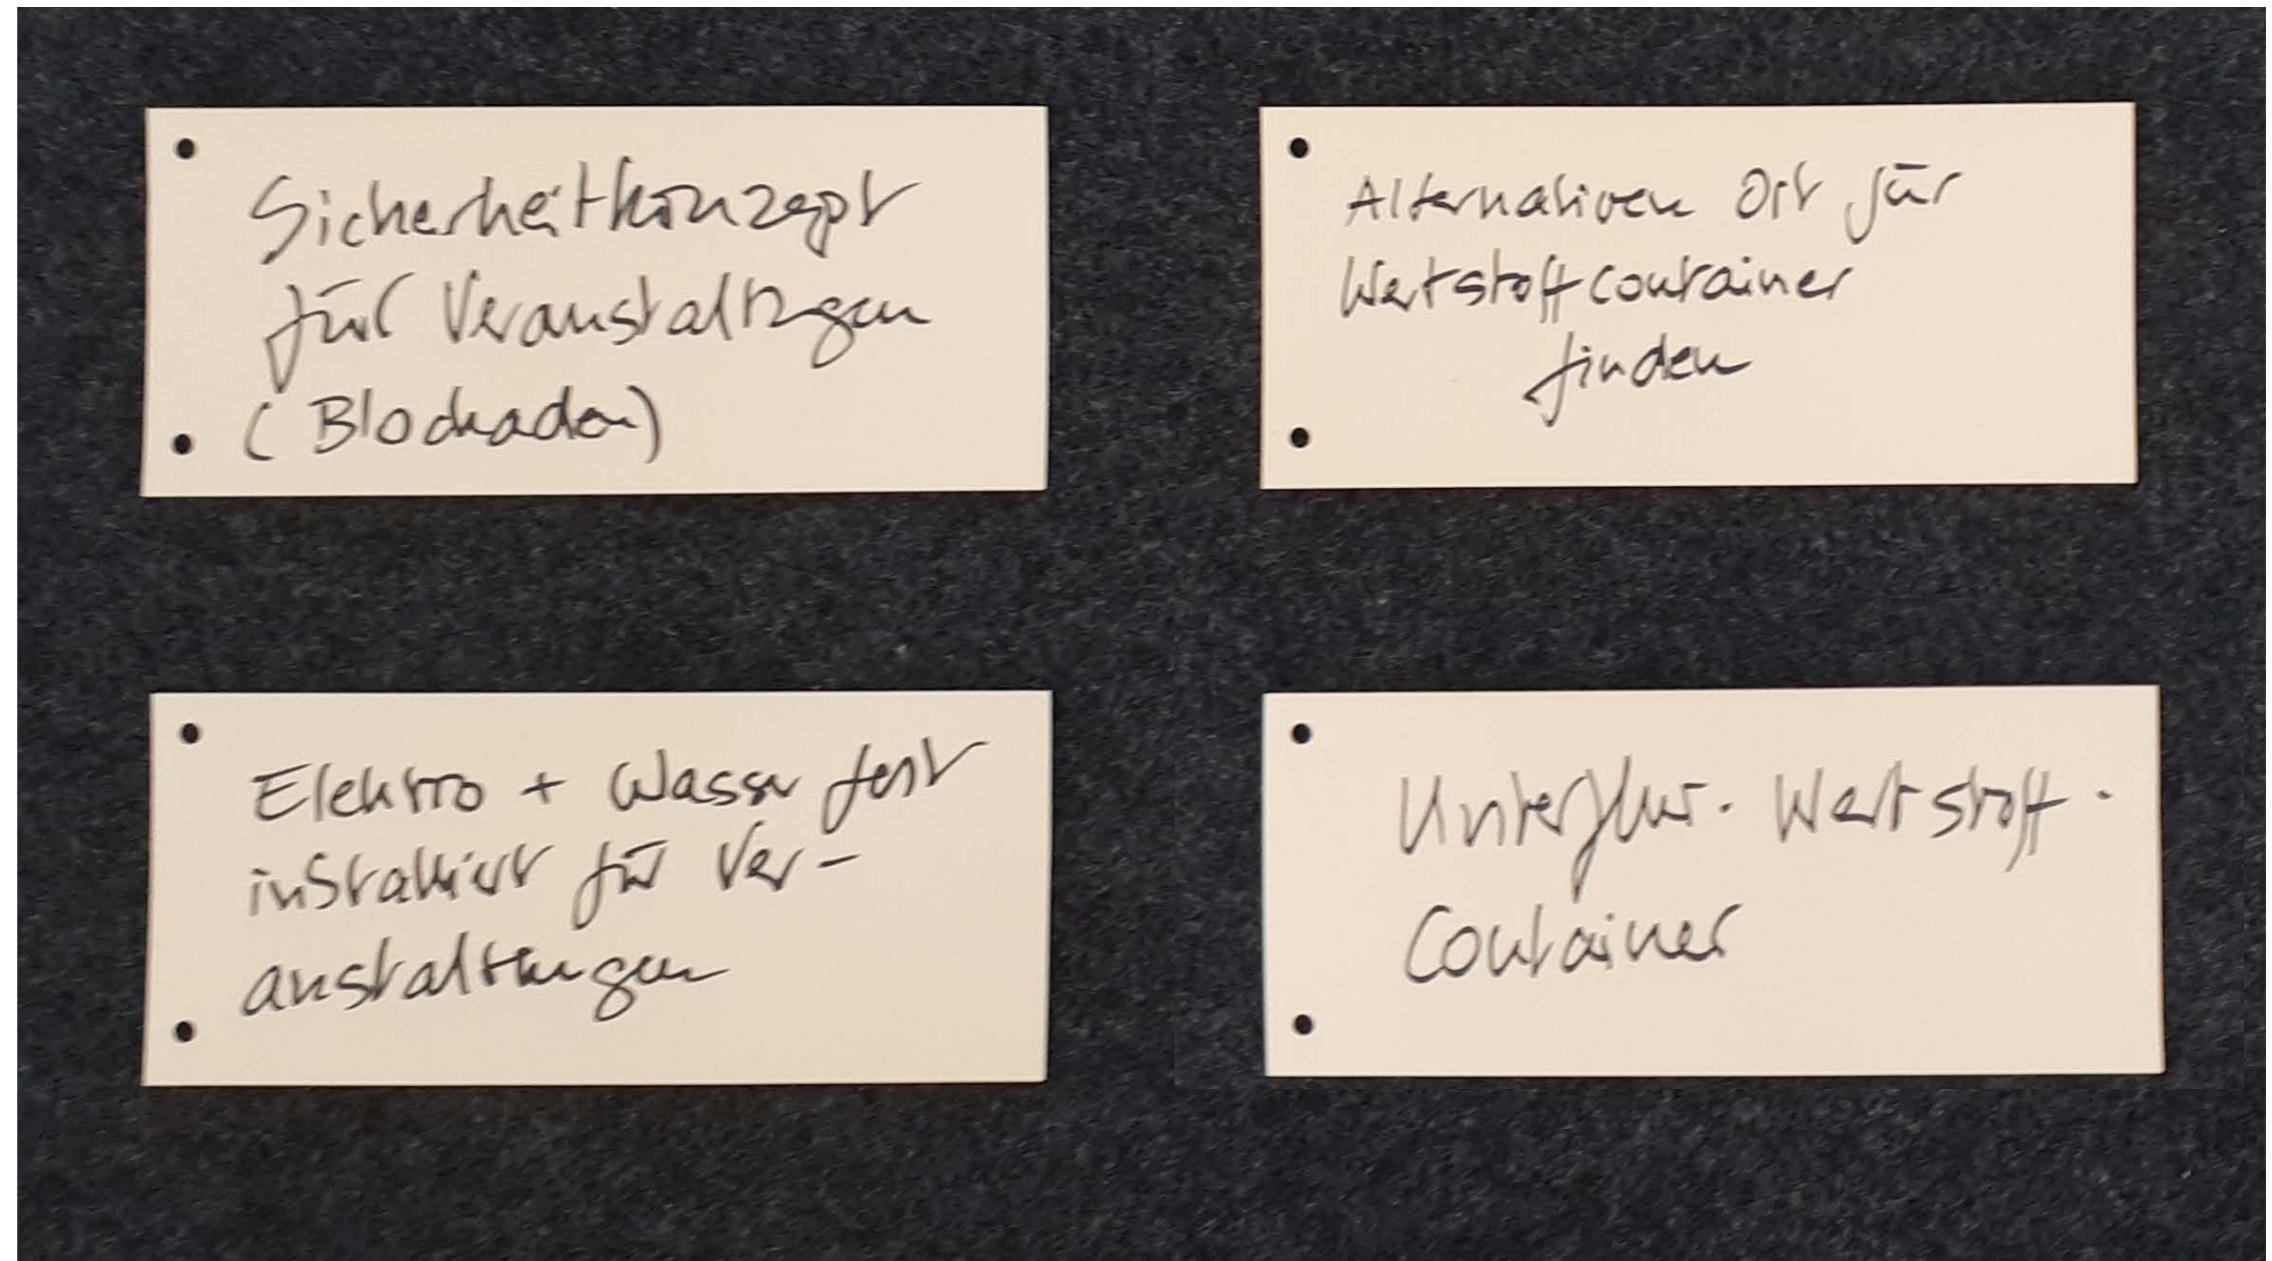 Sicherheitkonzept
für Veranstaltungen
(Blockaden)
Alternativen Ort für
Wertstoffcontainer
finden
Elektro + Wasser fest
installiert für Ver-
anstaltungen
Unterflur-Wertstoff-
Container